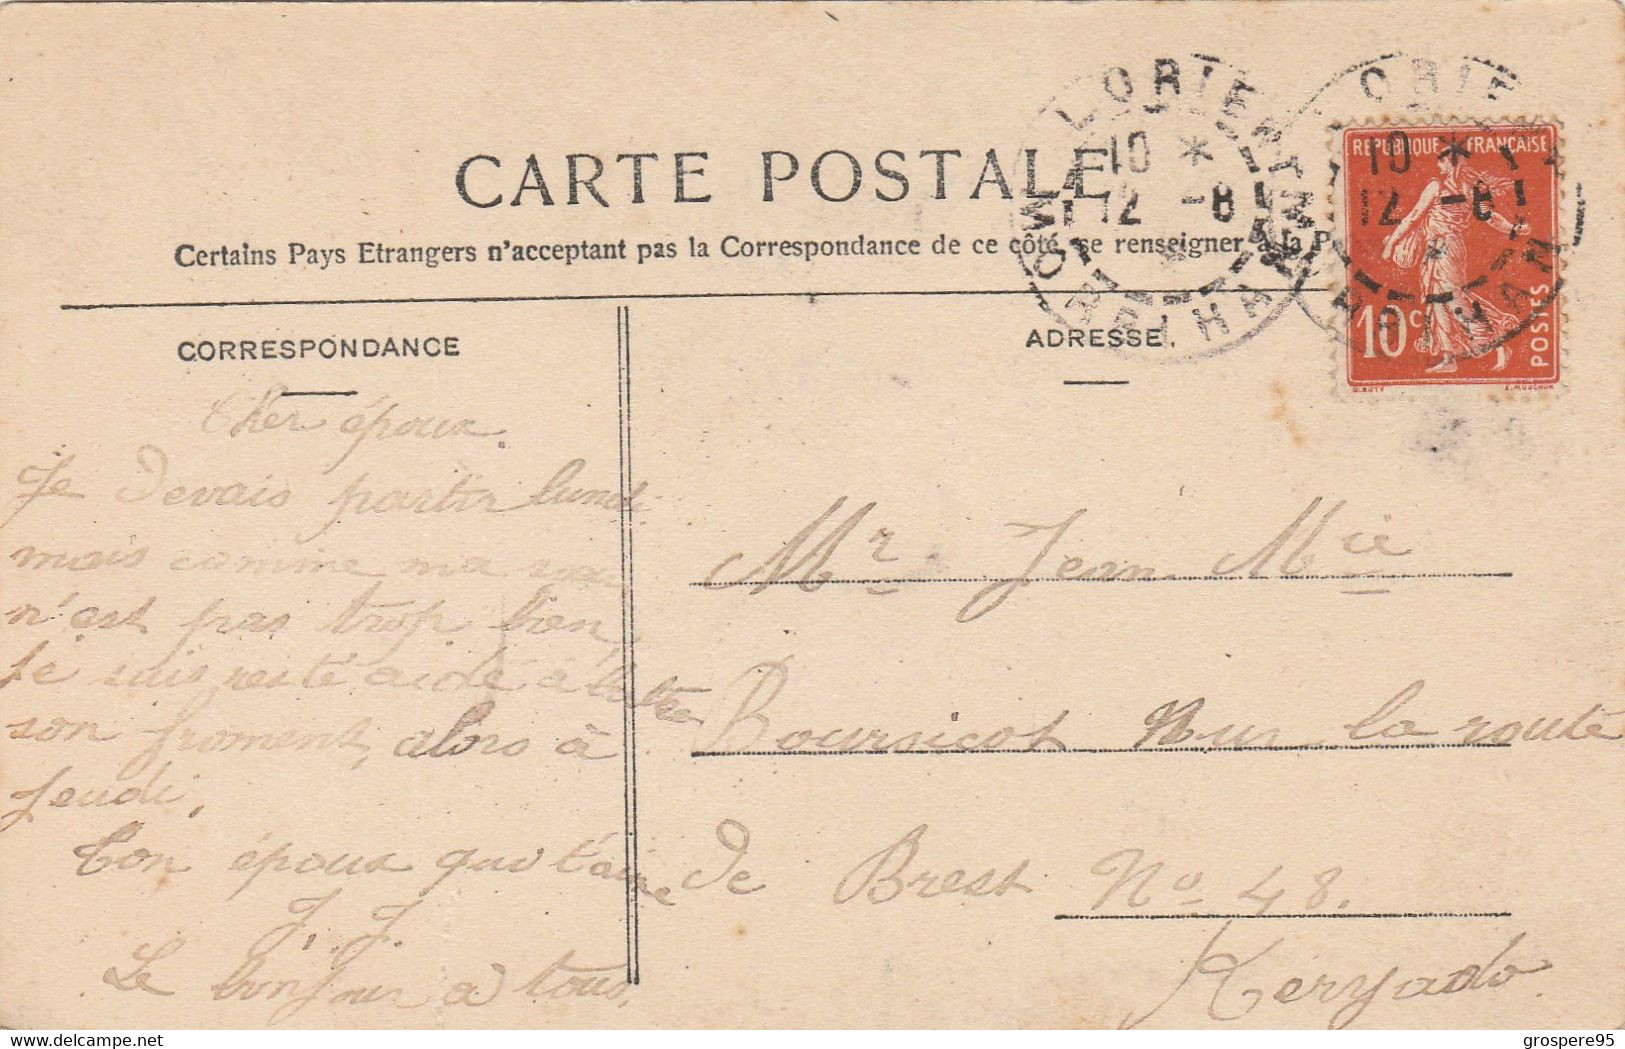 CARTE POSTALE
Certains Pays Etrangers n'acceptant pas la Correspondance de ce côté, se renseigner à la P
CORRESPONDANCE
Cher époux.
Je devais partir lundi
mais comme ma
n'est pas trop bien
Je suis resté aidé à
son froment, alors à
Jeudi,
Ton époux qui t'aime
J. J.
Le bonjour a tous,
ADRESSE.
Mr Jean Mie
Boursicot sur la route
de Brest No 48.
Keryado
LORIENT
MORBIHAN
10 *
12 -8
ORIE
10 *
12 -8
BIHAN
REPUBLIQUE FRANÇAISE
10c
POSTES
O. ROTY
E. MOUCHON
delcampe.net
grospere95